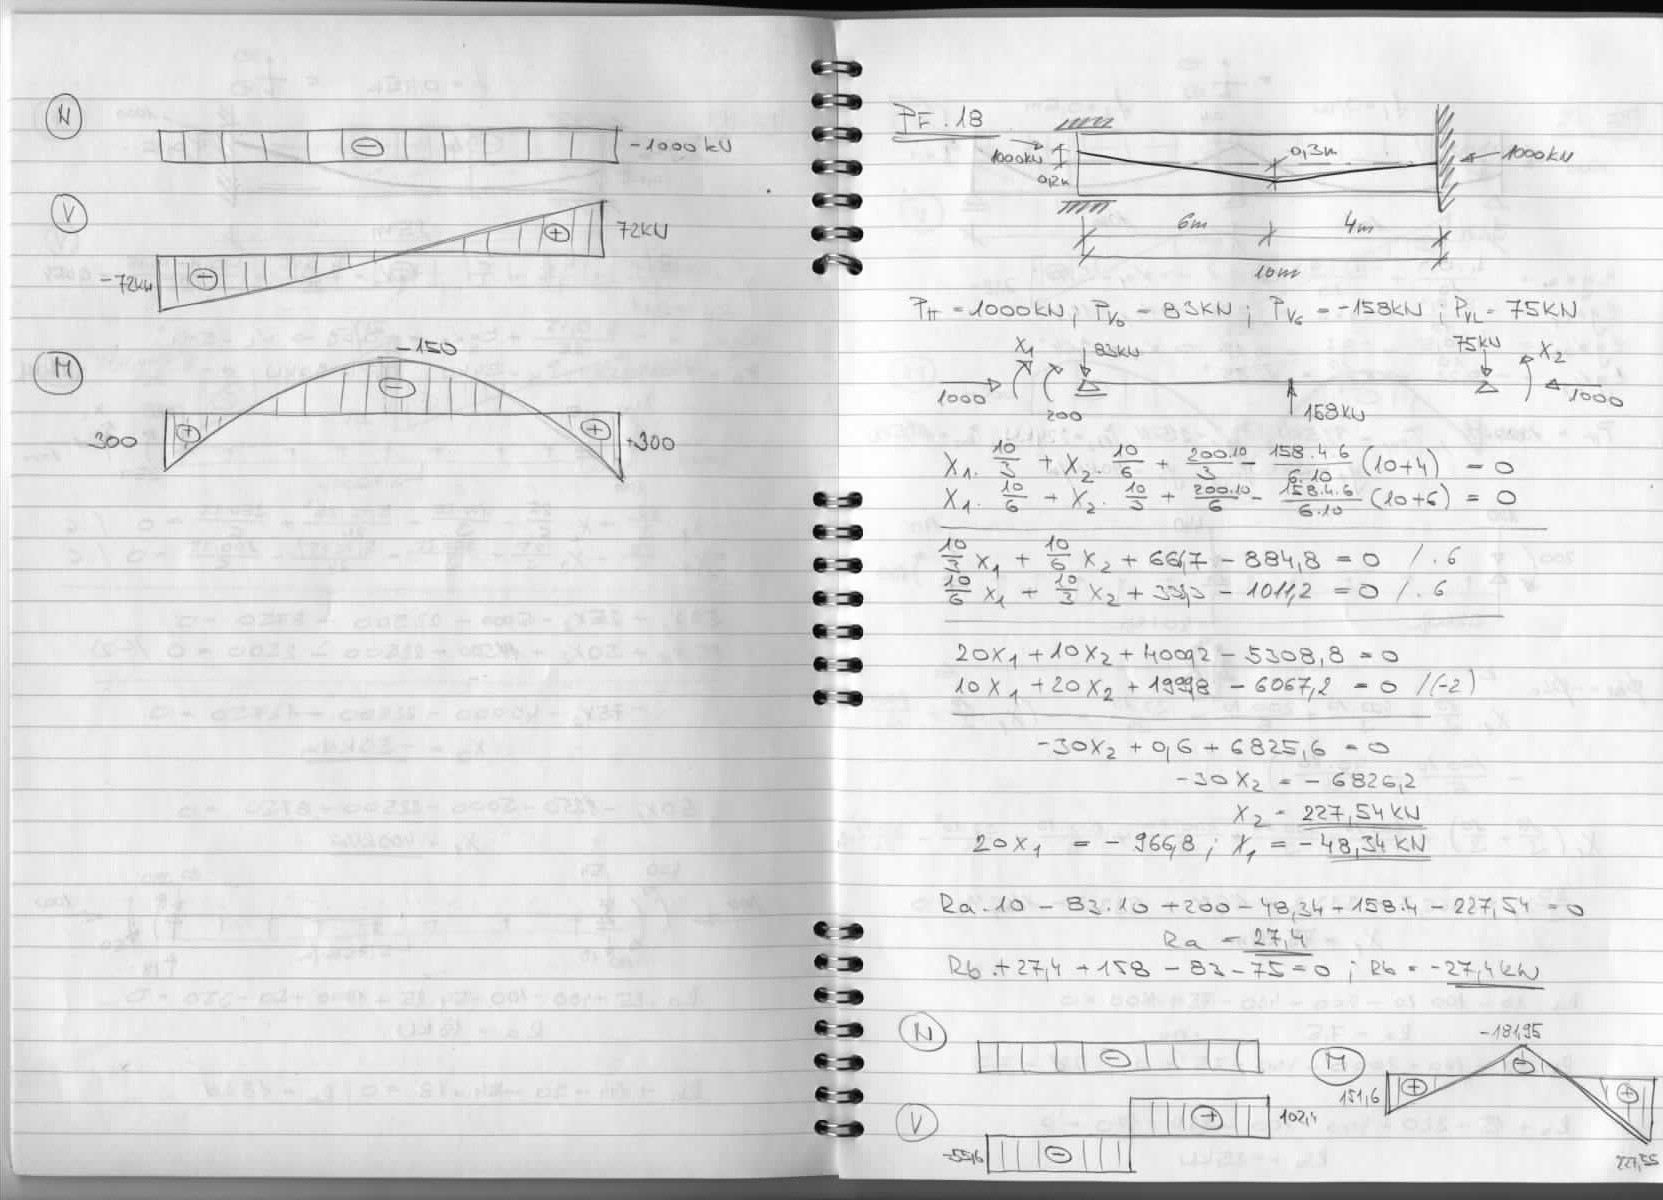 N
-1000 kN
V
72kN
-72kN
-150
M
300
+300
PŘ. 18
0,3m
1000kN
1000kN
0,2m
6m
4m
10m
PH = 1000kN; PV0 = 83KN; PV6 = -158kN; PVL = 75KN
X1
83kN
75kN
X2
1000
200
158kN
1000
X1 . 10/3 + X2 . 10/6 + 200.10/3 - 158.4.6/6.10 (10+4) = 0
X1 . 10/6 + X2 . 10/3 + 200.10/6 - 158.4.6/6.10 (10+6) = 0
10/3 X1 + 10/6 X2 + 666,7 - 884,8 = 0 / . 6
10/6 X1 + 10/3 X2 + 333,3 - 1011,2 = 0 / . 6
20X1 + 10X2 + 4000,2 - 5308,8 = 0
10X1 + 20X2 + 1999,8 - 6067,2 = 0 /(-2)
-30X2 + 0,6 + 6825,6 = 0
-30X2 = - 6826,2
X2 = 227,54 KN
20X1 = - 966,8 ; X1 = - 48,34 KN
Ra . 10 - 83.10 + 200 - 48,34 + 158.4 - 227,54 = 0
Ra = 27,4
Rb + 27,4 + 158 - 83 - 75 = 0 ; Rb = -27,4 kN
N
-181,95
M
151,6
V
102,4
-55,6
227,55